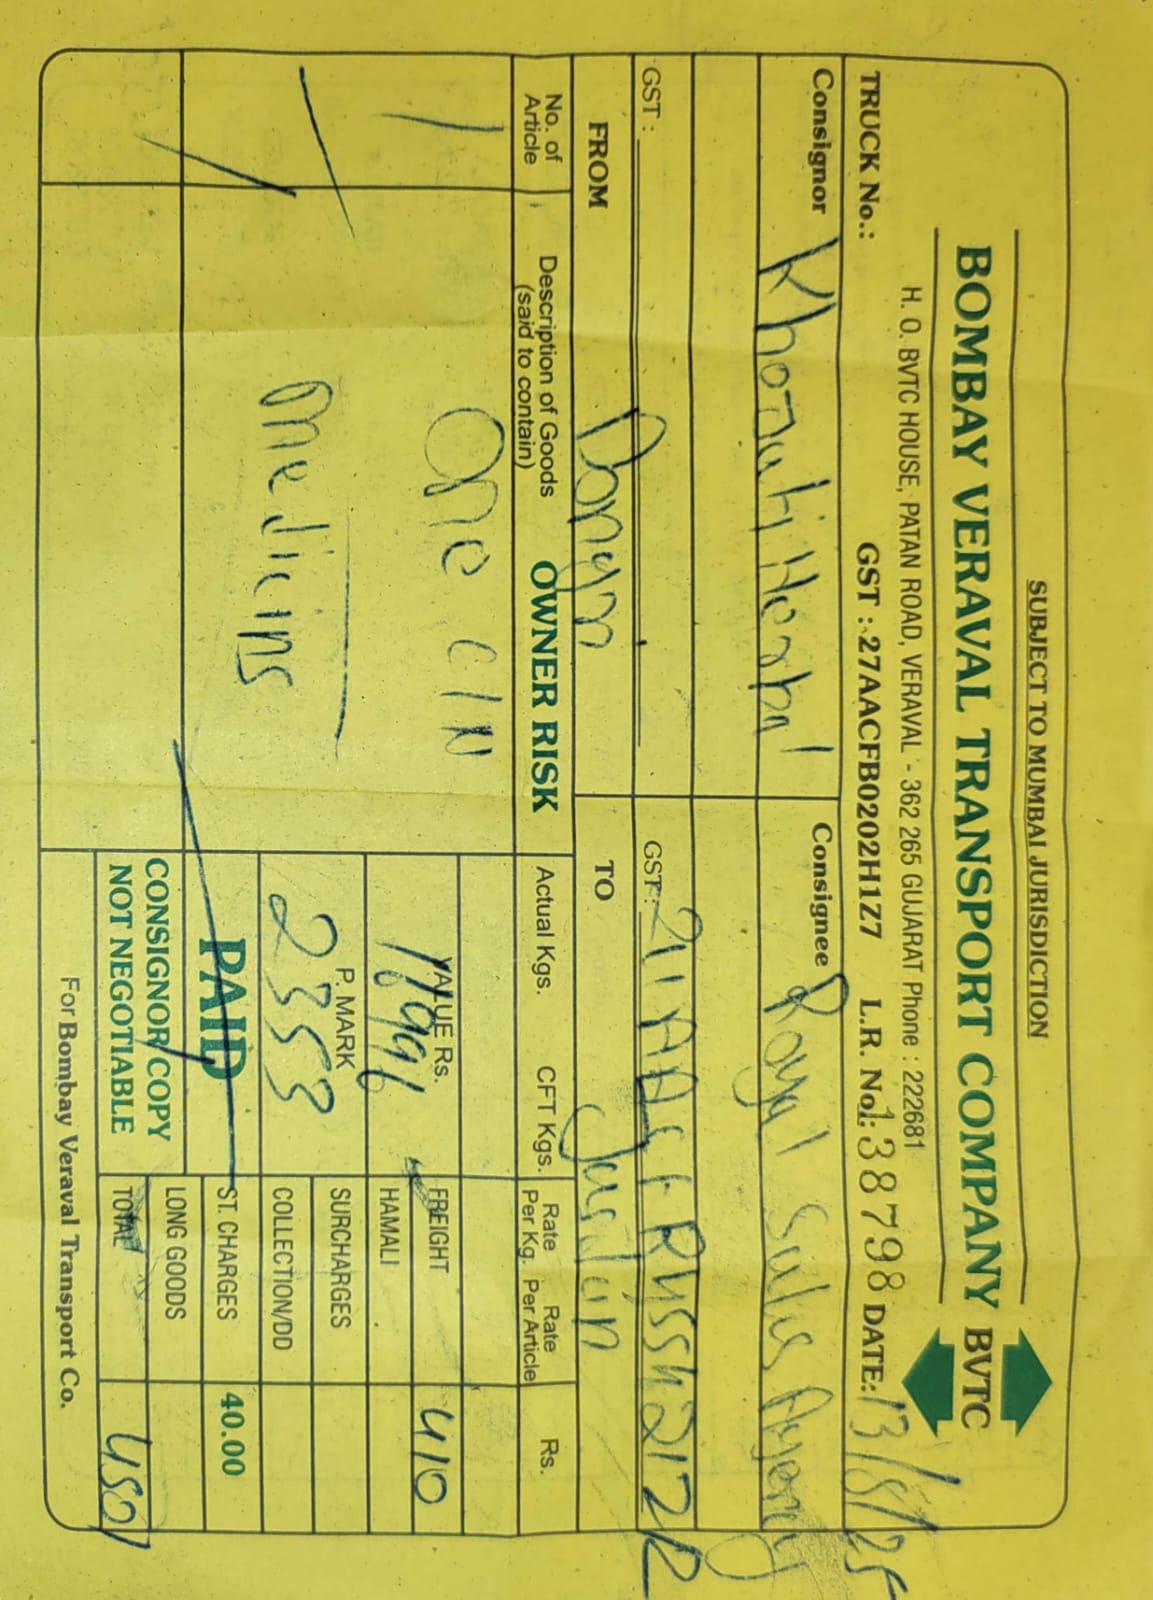 SUBJECT TO MUMBAI JURISDICTION
BOMBAY VERAVAL TRANSPORT COMPANY BVTC
H. O. BVTC HOUSE, PATAN ROAD, VERAVAL - 362 265 GUJARAT Phone : 222681
TRUCK No.: GST : 27AACFB0202H1Z7 L.R. No.: 138798 DATE: 13/5/25
Consignor Consignee Royal Sales
GST : GST :
FROM Dongri TO Jasdan
No. of Article Description of Goods (said to contain) OWNER RISK Actual Kgs. CFT Kgs. Rate Per Kg. Rate Per Article Rs.
1 One C/N
VALUE Rs. FREIGHT 410
HAMALI
P. MARK SURCHARGES
Medicins 2353 COLLECTION/DD
PAID ST. CHARGES 40.00
CONSIGNOR COPY LONG GOODS
NOT NEGOTIABLE TOTAL 450/
For Bombay Veraval Transport Co.